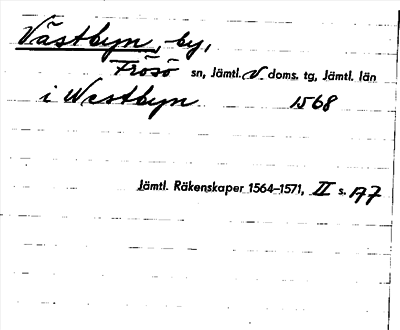 Västbyn, by,
Frösö sn, Jämtl. V. doms. tg, Jämtl. län
i Westbyn 1568
Jämtl. Räkenskaper 1564–1571, II s. 177